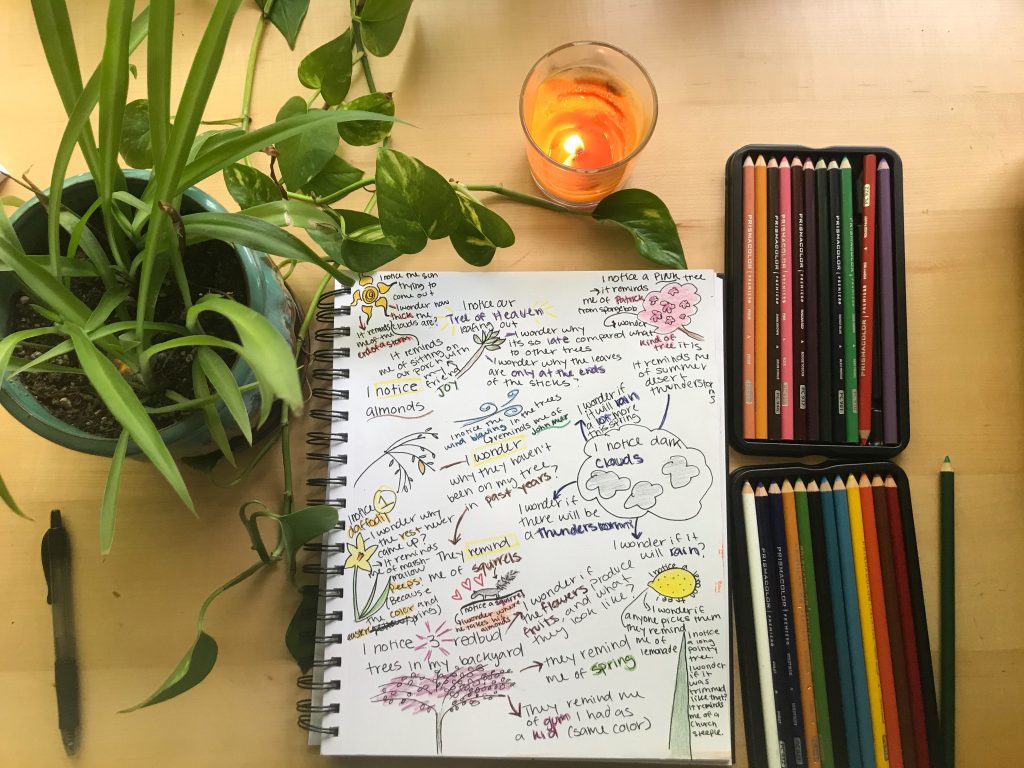 I notice the sun
trying to
come out
I wonder how
thick the
clouds are?
It reminds
me of the
end of a storm
I notice our
Tree of Heaven
leafing out
It reminds
me of sitting on
our porch with
my friend
JOY
I wonder why
its so late compared
to other trees
I wonder why the leaves
are only at the ends
of the sticks?
I notice a PINK tree
It reminds
me of Patrick
from spongebob
I wonder
what
kind of
tree it is
It reminds me
of summer
desert
thunderstorms
I notice
almonds
I notice the trees
wind blowing in the
reminds me of
John Muir
I wonder
why they haven't
been on my tree
in past years?
They remind
me of squirrels
I wonder if
it will rain
a lot more
this spring
I notice dark
clouds
I wonder if
there will be
a thunderstorm
I wonder if it
will rain?
I notice
1
daffodil
I wonder why
the rest never
came up?
It reminds
me of marsh-
mallow
peeps!
(Because
the color and
spring)
I notice a squirrel
I wonder where
he takes his
almonds
I wonder if
the flowers produce
fruits, and what
they look like?
I notice 3 redbud
trees in my backyard
they remind
me of spring
They remind me
of gum I had as
a kid (same color)
I notice
I wonder if
anyone picks them
they remind
me of
lemonade
I notice
a long
pointy
tree.
I wonder
if it
was
trimmed
like that?
It reminds
me of a
church
steeple.
PRISMACOLOR PREMIER
PRISMACOLOR PREMIER
PRISMACOLOR PREMIER
PRISMACOLOR PREMIER
PRISMACOLOR PREMIER
PRISMACOLOR